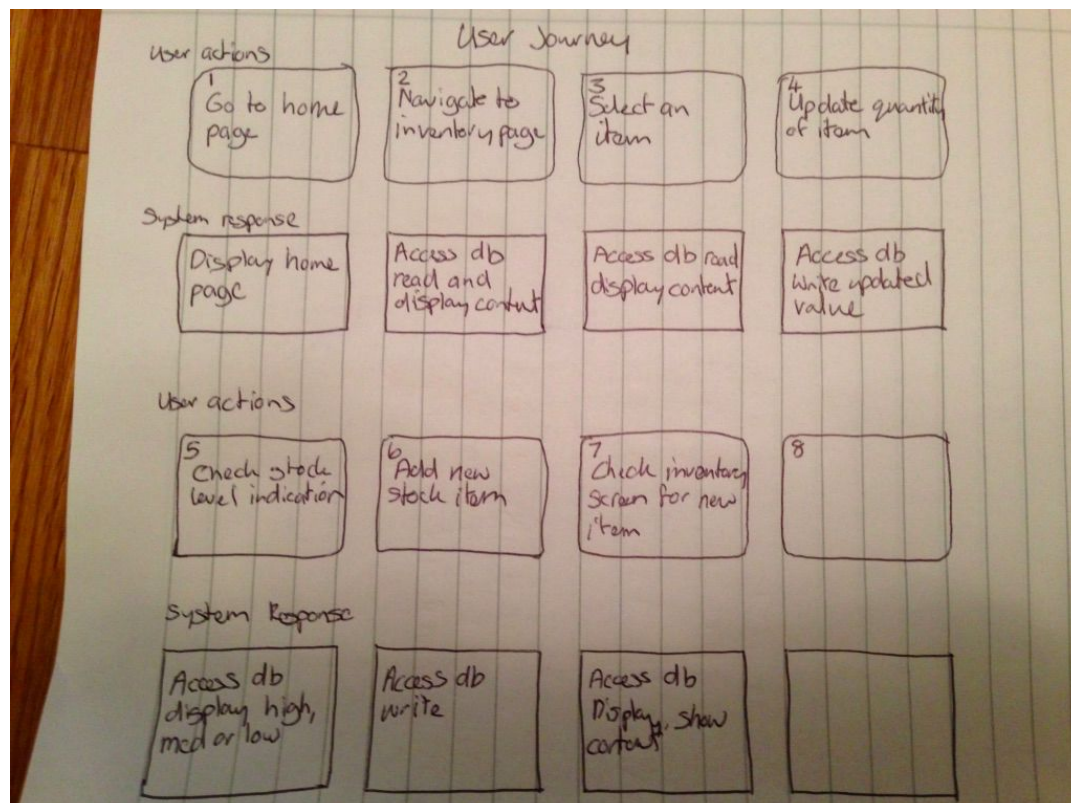 User Journey
User actions
1
Go to home
page
2
Navigate to
inventory page
3
Select an
item
4
Update quantity
of item
System response
Display home
page
Access db
read and
display content
Access db read
display content
Access db
write updated
value
User actions
5
Check stock
level indication
6
Add new
stock item
7
Check inventory
screen for new
item
8
System Response
Access db
display high,
med or low
Access db
write
Access db
Display, show
content